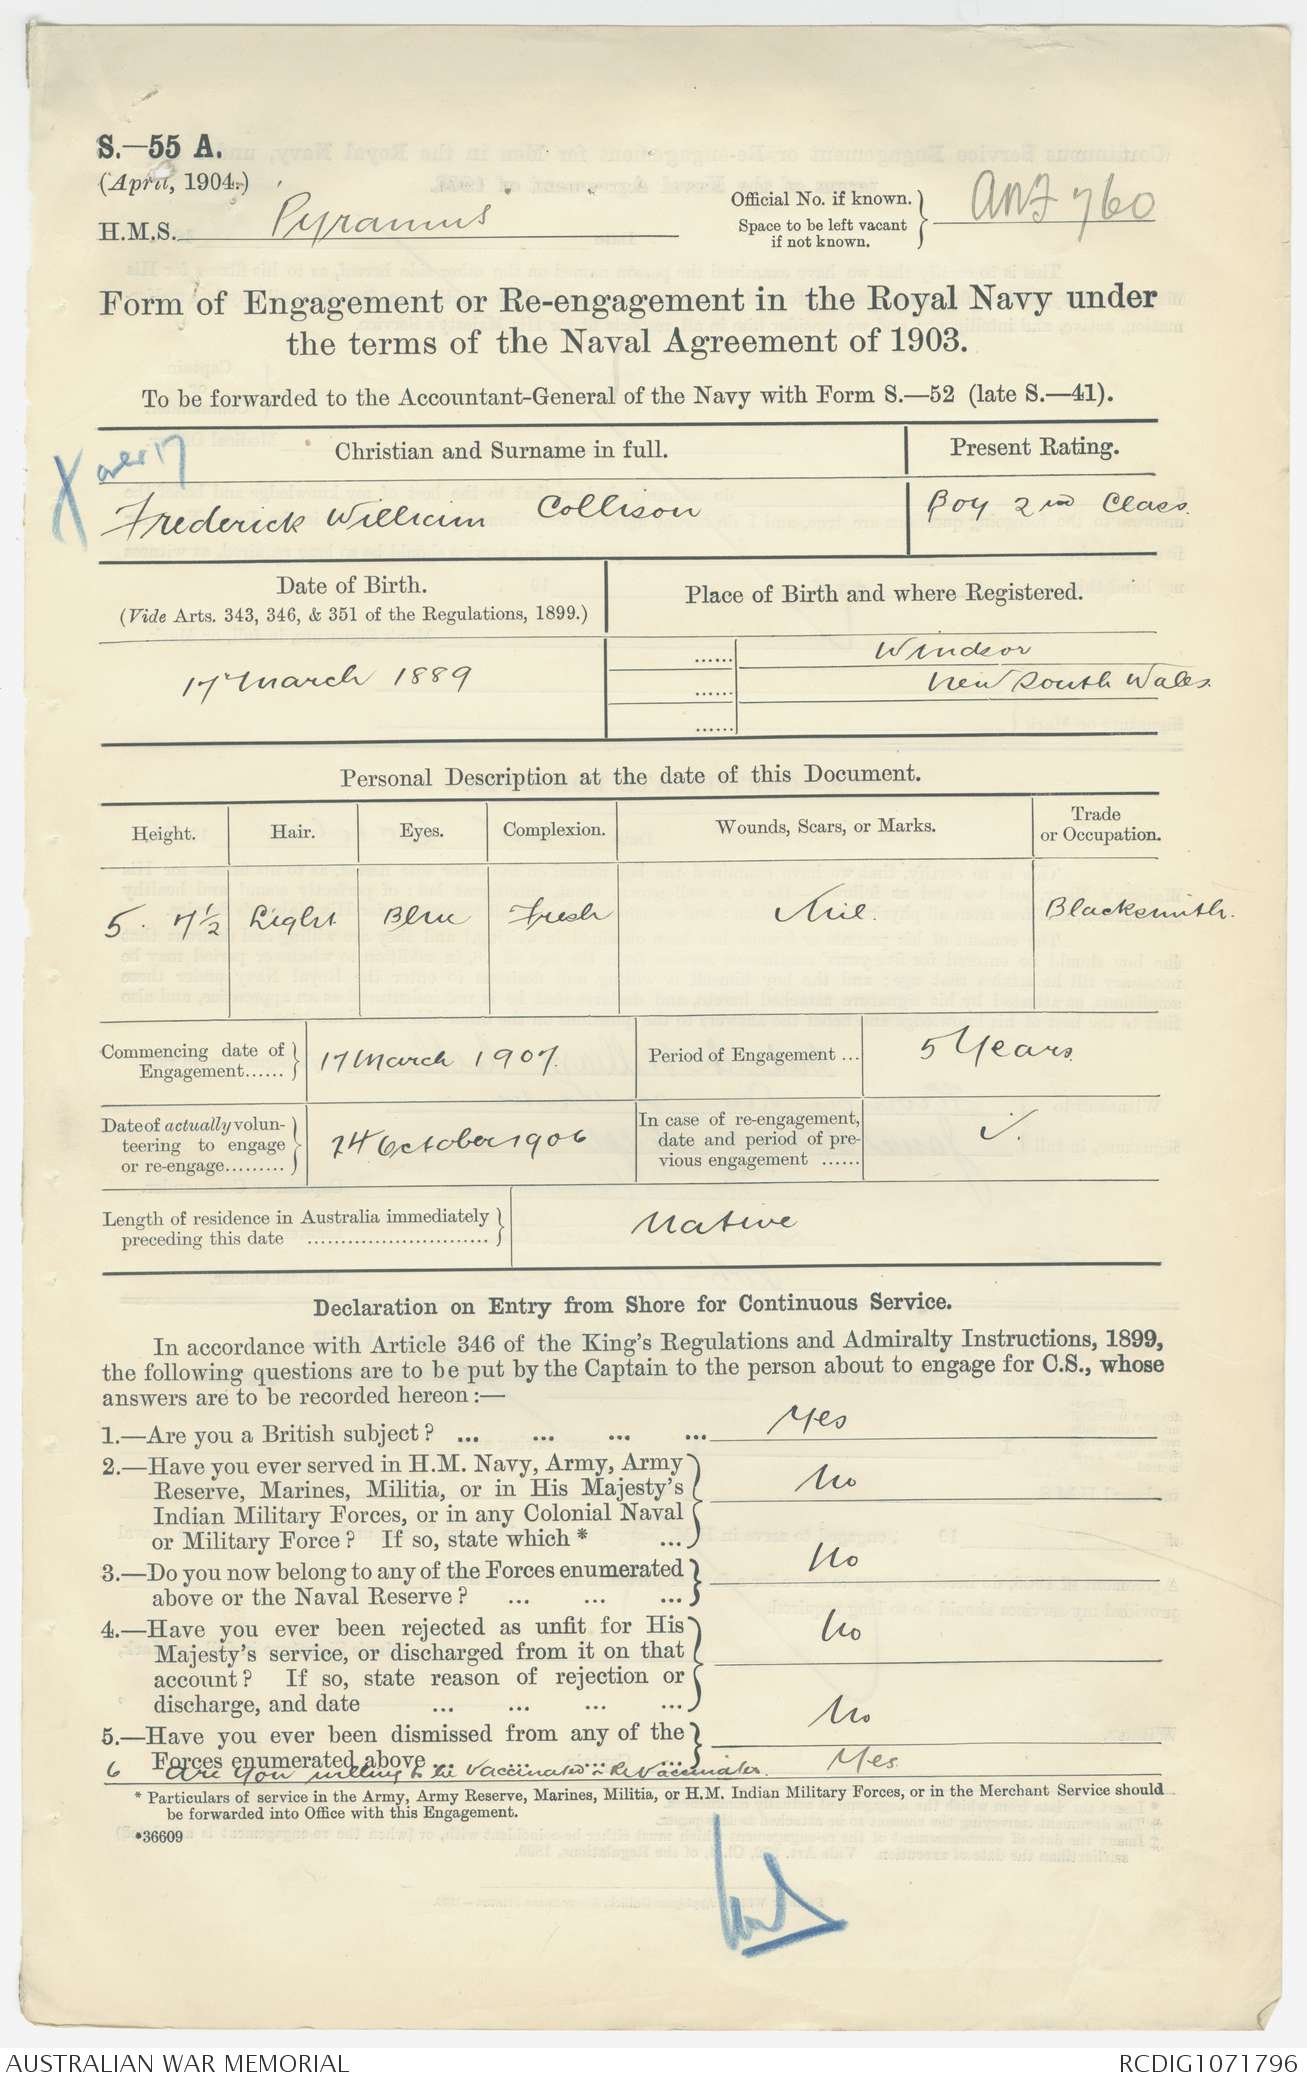 S.—55 A.
(April, 1904.)
H.M.S. Pyramus
Official No. if known.
Space to be left vacant
if not known.
ANF 760
Form of Engagement or Re-engagement in the Royal Navy under
the terms of the Naval Agreement of 1903.
To be forwarded to the Accountant-General of the Navy with Form S.—52 (late S.—41).
X over 17
Christian and Surname in full.
Present Rating.
Frederick William Collison
Boy 2nd Class.
Date of Birth.
(Vide Arts. 343, 346, & 351 of the Regulations, 1899.)
Place of Birth and where Registered.
17 March 1889
...... Windsor
...... New South Wales.
......
Personal Description at the date of this Document.
Height. Hair. Eyes. Complexion. Wounds, Scars, or Marks. Trade
or Occupation.
5. 7½ Light Blue Fresh Nil. Blacksmith.
Commencing date of
Engagement......
17 March 1907.
Period of Engagement ...
5 Years.
Date of actually volun-
teering to engage
or re-engage.........
24 October 1906
In case of re-engagement,
date and period of pre-
vious engagement ......
Length of residence in Australia immediately
preceding this date ...........................
Native
Declaration on Entry from Shore for Continuous Service.
In accordance with Article 346 of the King's Regulations and Admiralty Instructions, 1899,
the following questions are to be put by the Captain to the person about to engage for C.S., whose
answers are to be recorded hereon :—
1.—Are you a British subject? ... ... ... ... Yes
2.—Have you ever served in H.M. Navy, Army, Army
Reserve, Marines, Militia, or in His Majesty's
Indian Military Forces, or in any Colonial Naval
or Military Force? If so, state which * ...
No
3.—Do you now belong to any of the Forces enumerated
above or the Naval Reserve? ... ... ...
No
4.—Have you ever been rejected as unfit for His
Majesty's service, or discharged from it on that
account? If so, state reason of rejection or
discharge, and date ... ... ... ...
No
5.—Have you ever been dismissed from any of the
Forces enumerated above ... ... ... ...
No
6 Are you willing to be Vaccinated or ReVaccinated. Yes.
* Particulars of service in the Army, Army Reserve, Marines, Militia, or H.M. Indian Military Forces, or in the Merchant Service should
be forwarded into Office with this Engagement.
*36609
AUSTRALIAN WAR MEMORIAL
RCDIG1071796